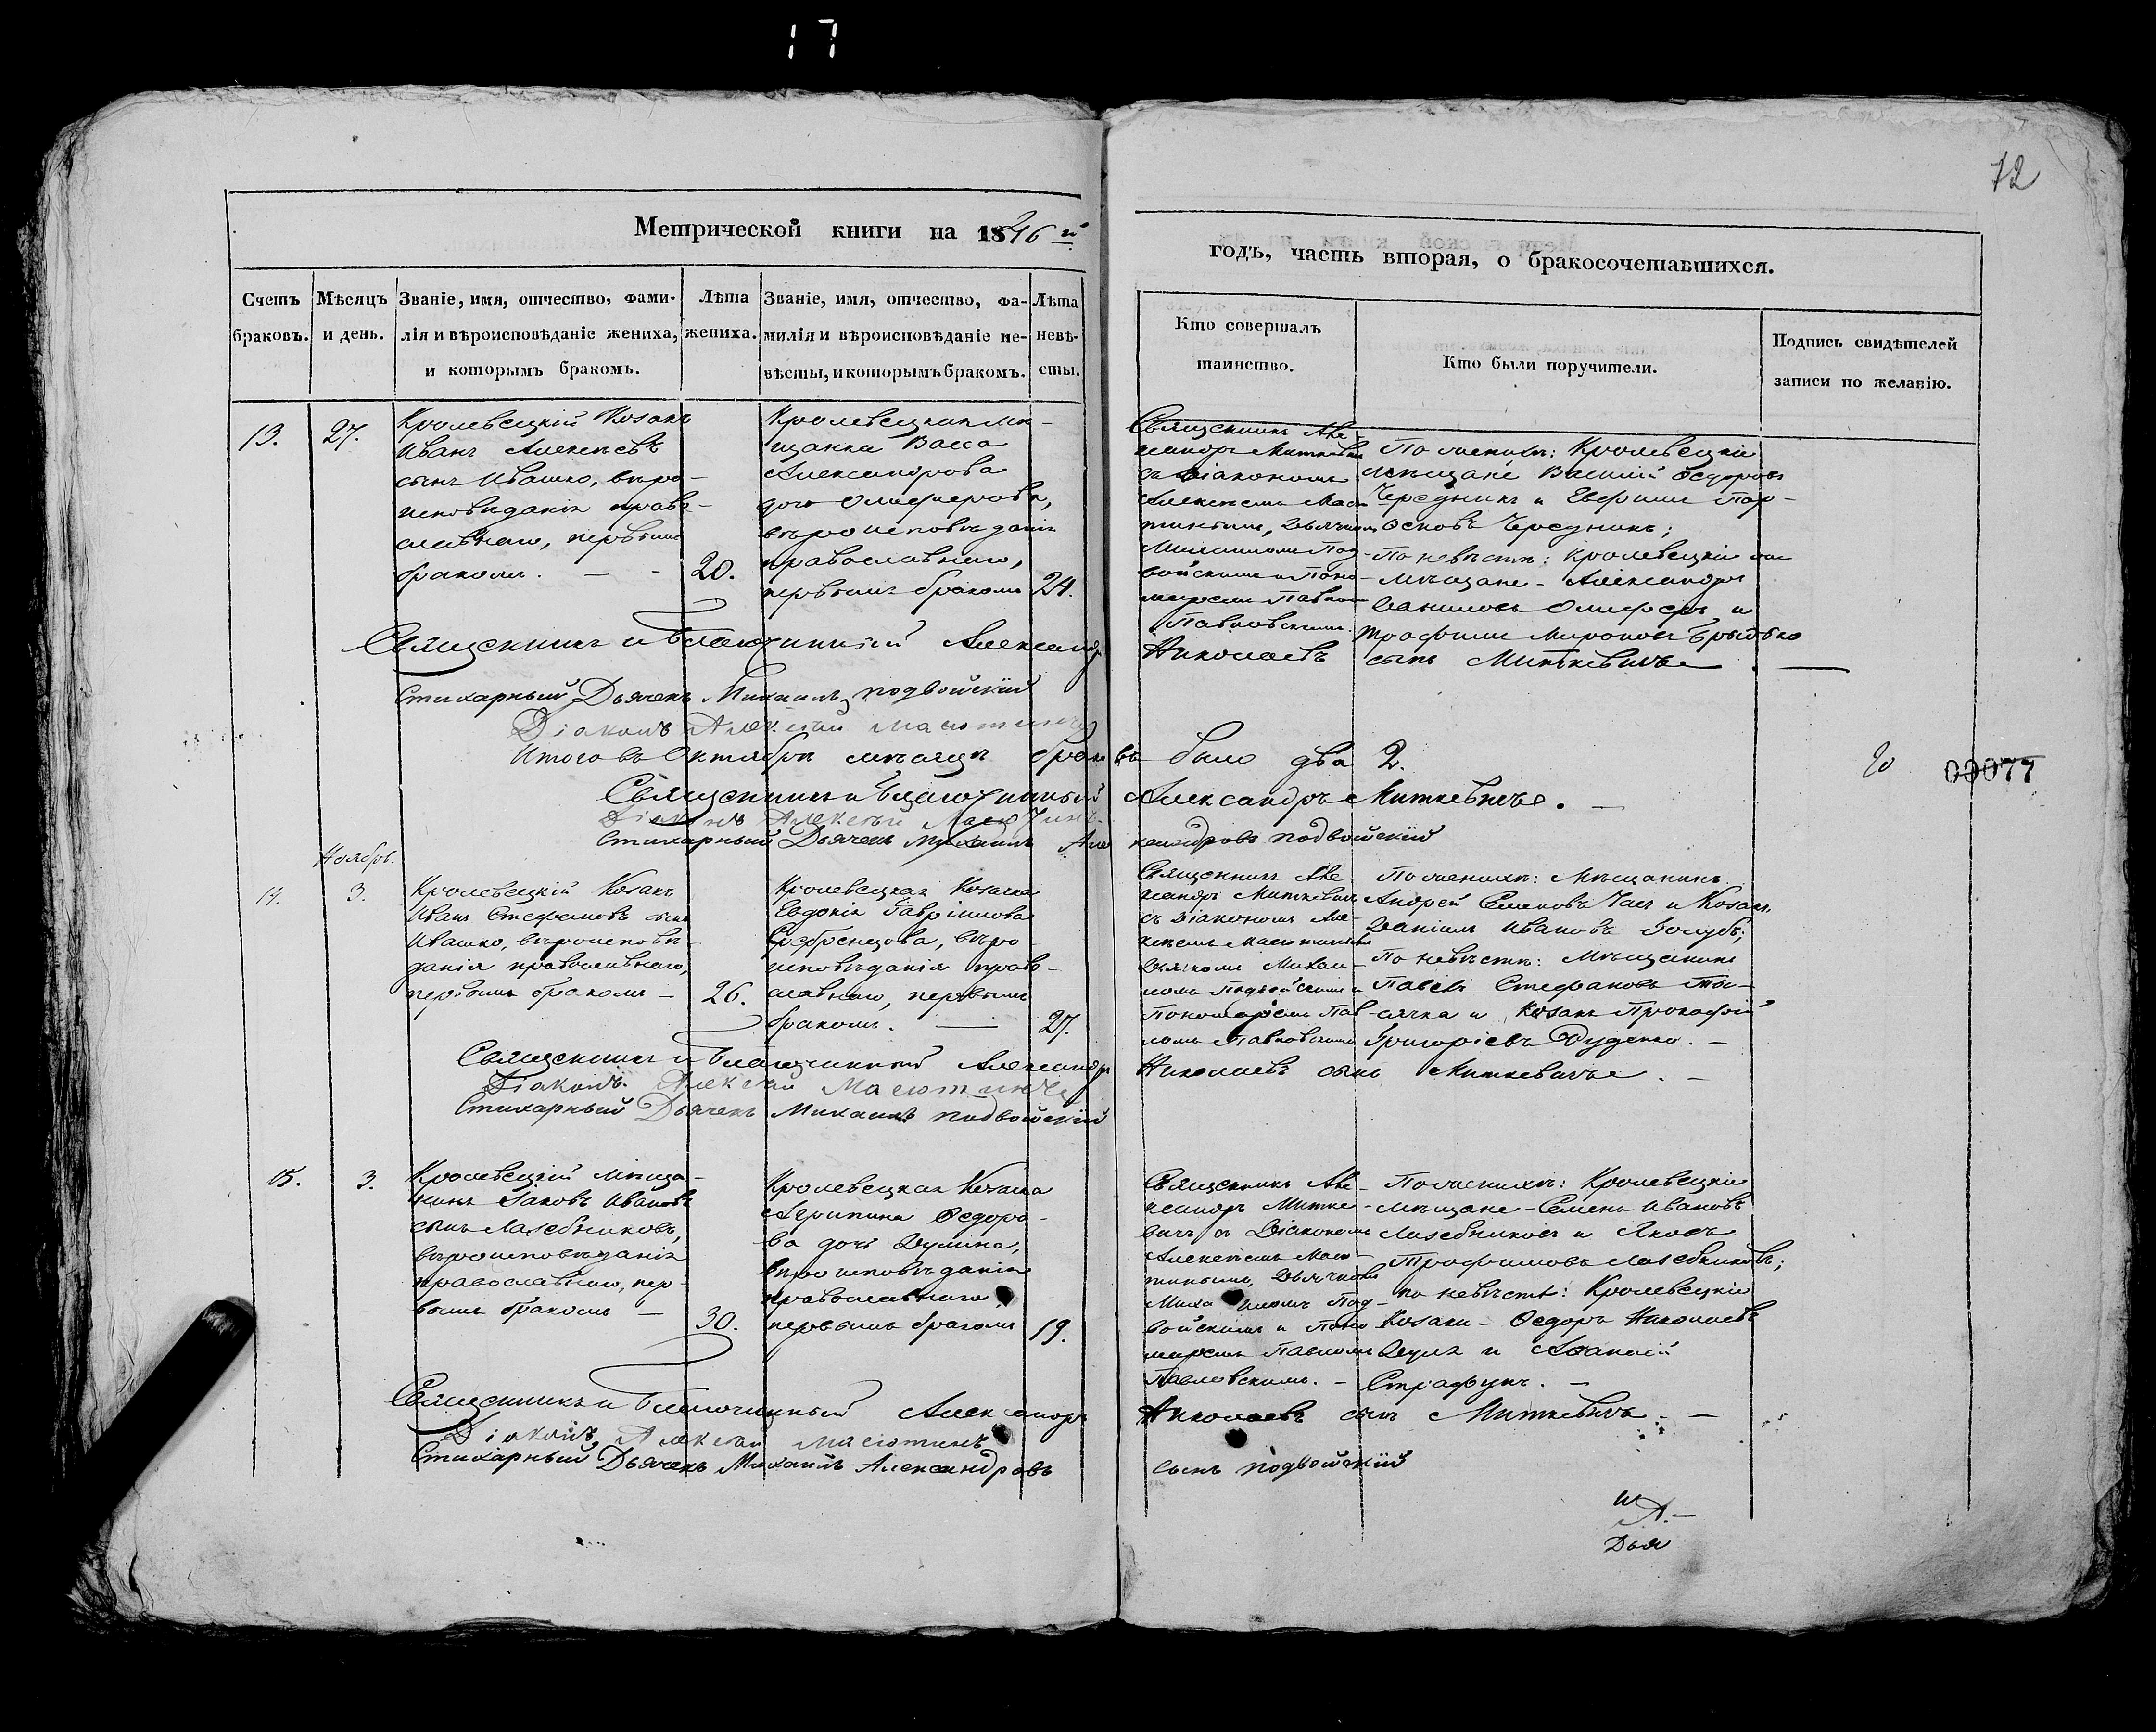 17
72
Метрической книги на 1846й
годъ, часть вторая, о бракосочетавшихся.
Счетъ браковъ.
Мѣсяцъ и день.
Званіе, имя, отчество, фами-
лія и вѣроисповѣданіе жениха,
и которымъ бракомъ.
Лѣта
жениха.
Званіе, имя, отчество, фа-
милія и вѣроисповѣданіе не-
вѣсты, и которымъ бракомъ.
Лѣта
невѣ-
сты.
Кто совершалъ
таинство.
Кто были поручители.
Подпись свидѣтелей
записи по желанію.
13.
27.
Кролевецкій Козакъ
Иванъ Алексѣевъ
сынъ Ивашко, вѣро-
исповѣданія право-
славнаго, первымъ
бракомъ. — -
20.
Кролевецкая Мѣ-
щанка Васса
Александрова
дочь Олиферова,
вѣроисповѣданія
православнаго,
первымъ бракомъ
24.
Священникъ Але
ксандръ Миткевичъ
съ Діакономъ
Алексѣемъ Масю
тинымъ, Дьячкомъ
Михаиломъ Под-
войскимъ и Поно-
маремъ Павломъ
Павловскимъ.
По женихѣ: Кролевецкіе
мѣщане Василій Федоровъ
Чередникъ и Евфимъ Пар-
феновъ Чередникъ;
По невѣстѣ: Кролевецкіе
мѣщане - Александръ
Даниловъ Олиферъ и
Трофимъ Мироновъ
Священникъ и Благочинный Александръ Николаевъ сынъ Миткевичъ
Стихарный Дьячекъ Михаилъ Подвойскій
Діаконъ Алексѣй Масютинъ
Итого въ Октябрѣ мѣсяцѣ браковъ было два 2.
00077
Священникъ и Благочинный Александръ Миткевичъ. —
Діаконъ Алексѣй Масютинъ
Стихарный Дьячекъ Михаилъ Александровъ Подвойскій
Ноябрь.
14.
3.
Кролевецкій Козакъ
Иванъ Стефановъ сынъ
Ивашко, вѣроисповѣ-
данія православнаго,
первымъ бракомъ —
26.
Кролевецкая Козачка
Евдокія Гавріилова
Серебренцова, вѣро-
исповѣданія право-
славнаго, первымъ
бракомъ. —
27.
Священникъ Але
ксандръ Миткевичъ
съ Діакономъ Але-
ксѣемъ Масютинымъ
Дьячкомъ Михаи-
ломъ Подвойскимъ и
Пономаремъ Пав-
ломъ Павловскимъ
По женихѣ: Мѣщанинъ
Андрей Семеновъ Чалъ и Козакъ
Даніилъ Ивановъ Голубъ;
По невѣстѣ: Мѣщанинъ
Павелъ Стефановъ
и Козакъ Прокофій
Григорієвъ Дуденко. —
Священникъ и Благочинный Александръ Николаевъ сынъ Миткевичъ. —
Діаконъ Алексѣй Масютинъ
Стихарный Дьячекъ Михаилъ Подвойскій
15.
3.
Кролевецкій Мѣща-
нинъ Іаковъ Ивановъ
сынъ Лазебниковъ,
вѣроисповѣданія
православнаго, пер-
вымъ бракомъ —
30.
Кролевецкая Козачка
Агрипина Федоро-
ва дочь Дулина,
вѣроисповѣданія
православнаго,
первымъ бракомъ
19.
Священникъ Але-
ксандръ Митке-
вичъ съ Діакономъ
Алексѣемъ Масю-
тинымъ, Дьячкомъ
Михаиломъ Под-
войскимъ и Поно
маремъ Павломъ
Павловскимъ. —
По женихѣ: Кролевецкіе
мѣщане - Семенъ Ивановъ
Лазебниковъ и Яковъ
Трофимовъ Лазебниковъ;
по невѣстѣ: Кролевецкіе
Козаки - Федоръ Николаевъ
Дуля и Афанасій
Страфунъ. —
Священникъ и Благочинный Александръ Николаевъ сынъ Миткевичъ. —
Діаконъ Алексѣй Масютинъ
Стихарный Дьячекъ Михаилъ Александровъ сынъ Подвойскій
Дья